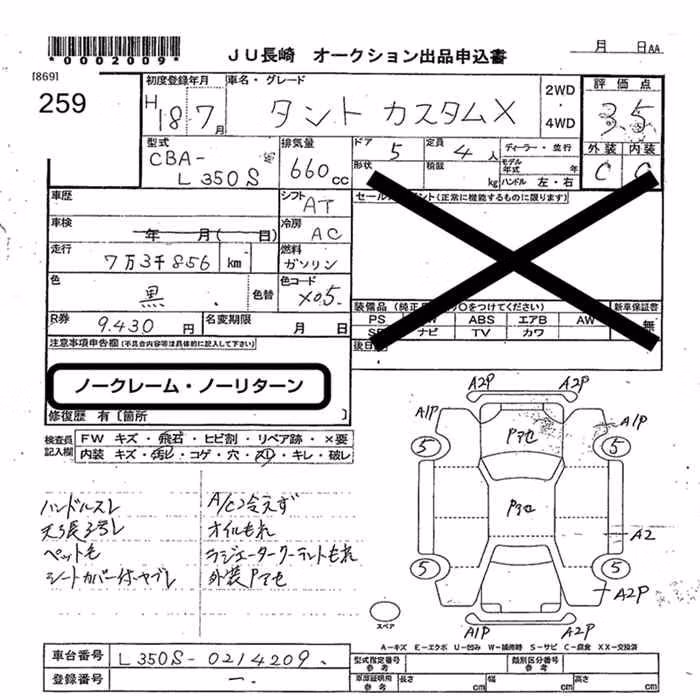 *0002009*
JU長崎 オークション出品申込書
月 日AA
[869]
259
初度登録年月 車名・グレード 2WD ・ 4WD 評価点
H 18 7月 タント カスタムX 3.5
型式 排気量 ドア 5 定員 4人 ディーラー・並行 外装 内装
CBA- L350S 660cc 形状 積載 kg モデル年式 年 ハンドル 左・右 C C
車歴 シフト AT
車検 年 月 (日) 冷房 AC
走行 7万3千856 km 燃料 ガソリン
色 黒 色替 色コード X05.
R券 9.430円 名変期限 月 日
(正常に機能するものに限ります)
装備品 をつけてください) 新車保証書
PS ABS エアB AW 無
ナビ TV カワ
後日
注意事項申告欄(不具合内容等は具体的に記入して下さい)
ノークレーム・ノーリターン
修復歴 有〔箇所 〕
検査員記入欄 FW キズ・飛石・ヒビ割・リペア跡・×要
内装 キズ・汚レ・コゲ・穴・スレ・キレ・破レ
ハンドルスレ A/C冷えず
オイルもれ
ペット毛 ラジエータークーラントもれ
シートカバー付ヤブレ
A2P A2P
A1P A1P
5 5
A2
5 5
A2P
A1P A2P
スペア
A-キズ E-エクボ U-凹み W-補修跡 S-サビ C-腐食 XX-交換済
車台番号 L350S-0214209.
登録番号 ー.
型式指定番号 参考 類別区分番号 参考
車庫証明用 参考 長さ cm 幅 cm 高さ cm